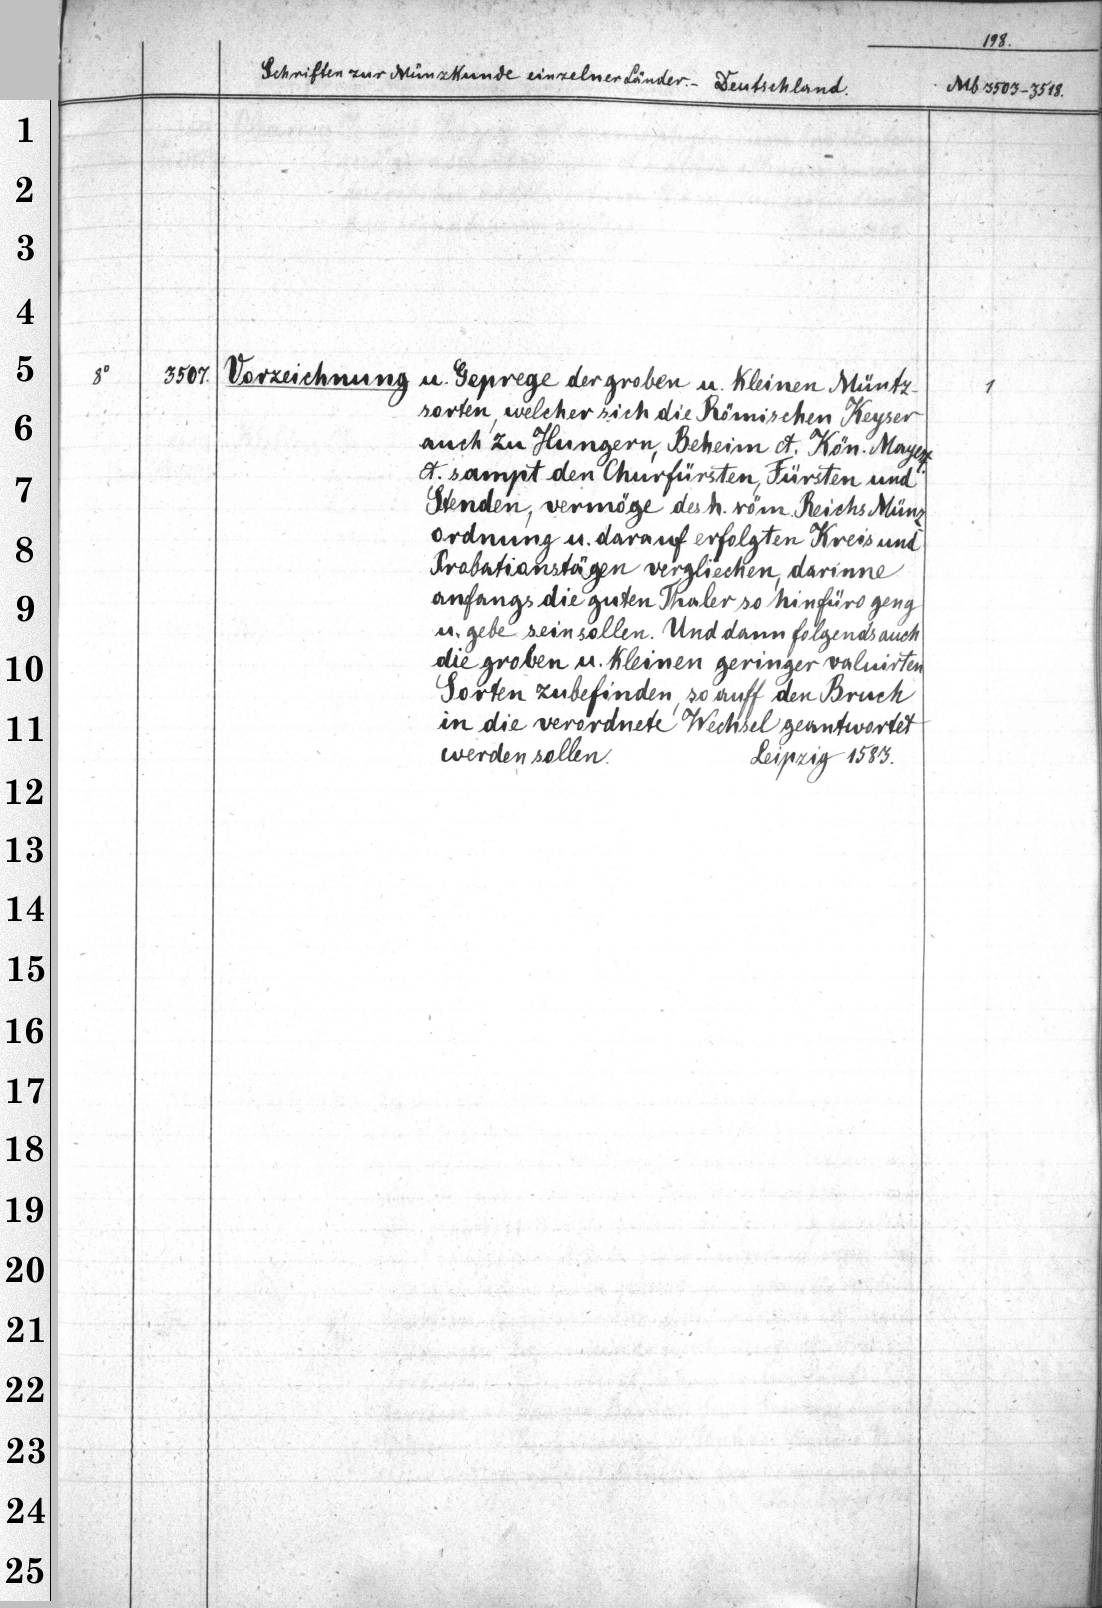 198.
Schriften zur Münzkunde einzelner Länder. - Deutschland. Mb 3503-3518.
1
2
3
4
5
8° 3507. Vorzeichnung u. Geprege der groben u. kleinen Müntz- 1
sorten, welcher sich die Römischen Keyser
6
auch zu Hungern, Beheim ct. Kön. Mayest.
ct. sampt den Churfürsten, Fürsten und
7
Stenden, vermöge des h. röm. Reichs Münz
ordnung u. darauf erfolgten Kreis und
8
Probationstägen vergliechen, darinne
anfangs die guten Thaler so hinfüro geng
9
u. gebe sein sollen. Und dann folgends auch
die groben u. kleinen geringer valuirten
10
Sorten zubefinden, so auff den Bruch
in die verordnete Wechsel geantwortet
11
werden sollen. Leipzig 1583.
12
13
14
15
16
17
18
19
20
21
22
23
24
25